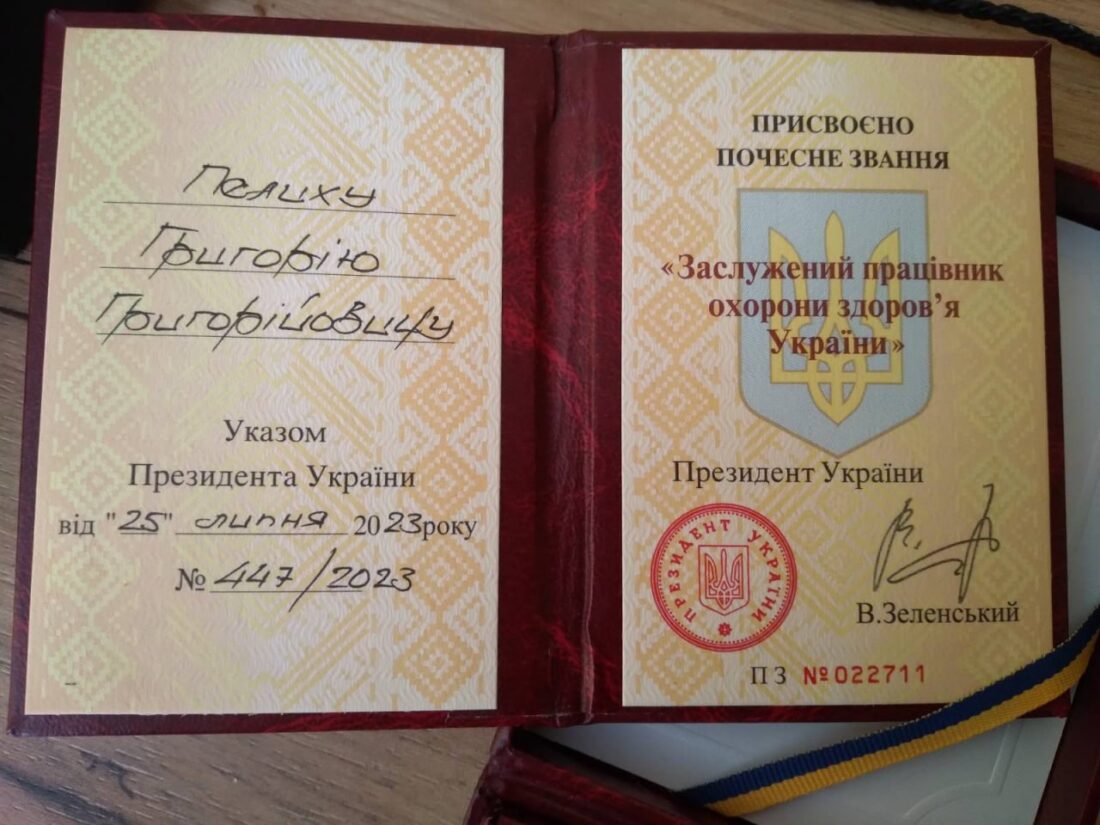 Пелиху
Григорію
Григорійовичу
Указом
Президента України
від "25" липня 2023 року
№ 447/2023
ПРИСВОЄНО
ПОЧЕСНЕ ЗВАННЯ
«Заслужений працівник
охорони здоров’я
України»
Президент України
ПРЕЗИДЕНТ УКРАЇНИ
В.Зеленський
П З №022711